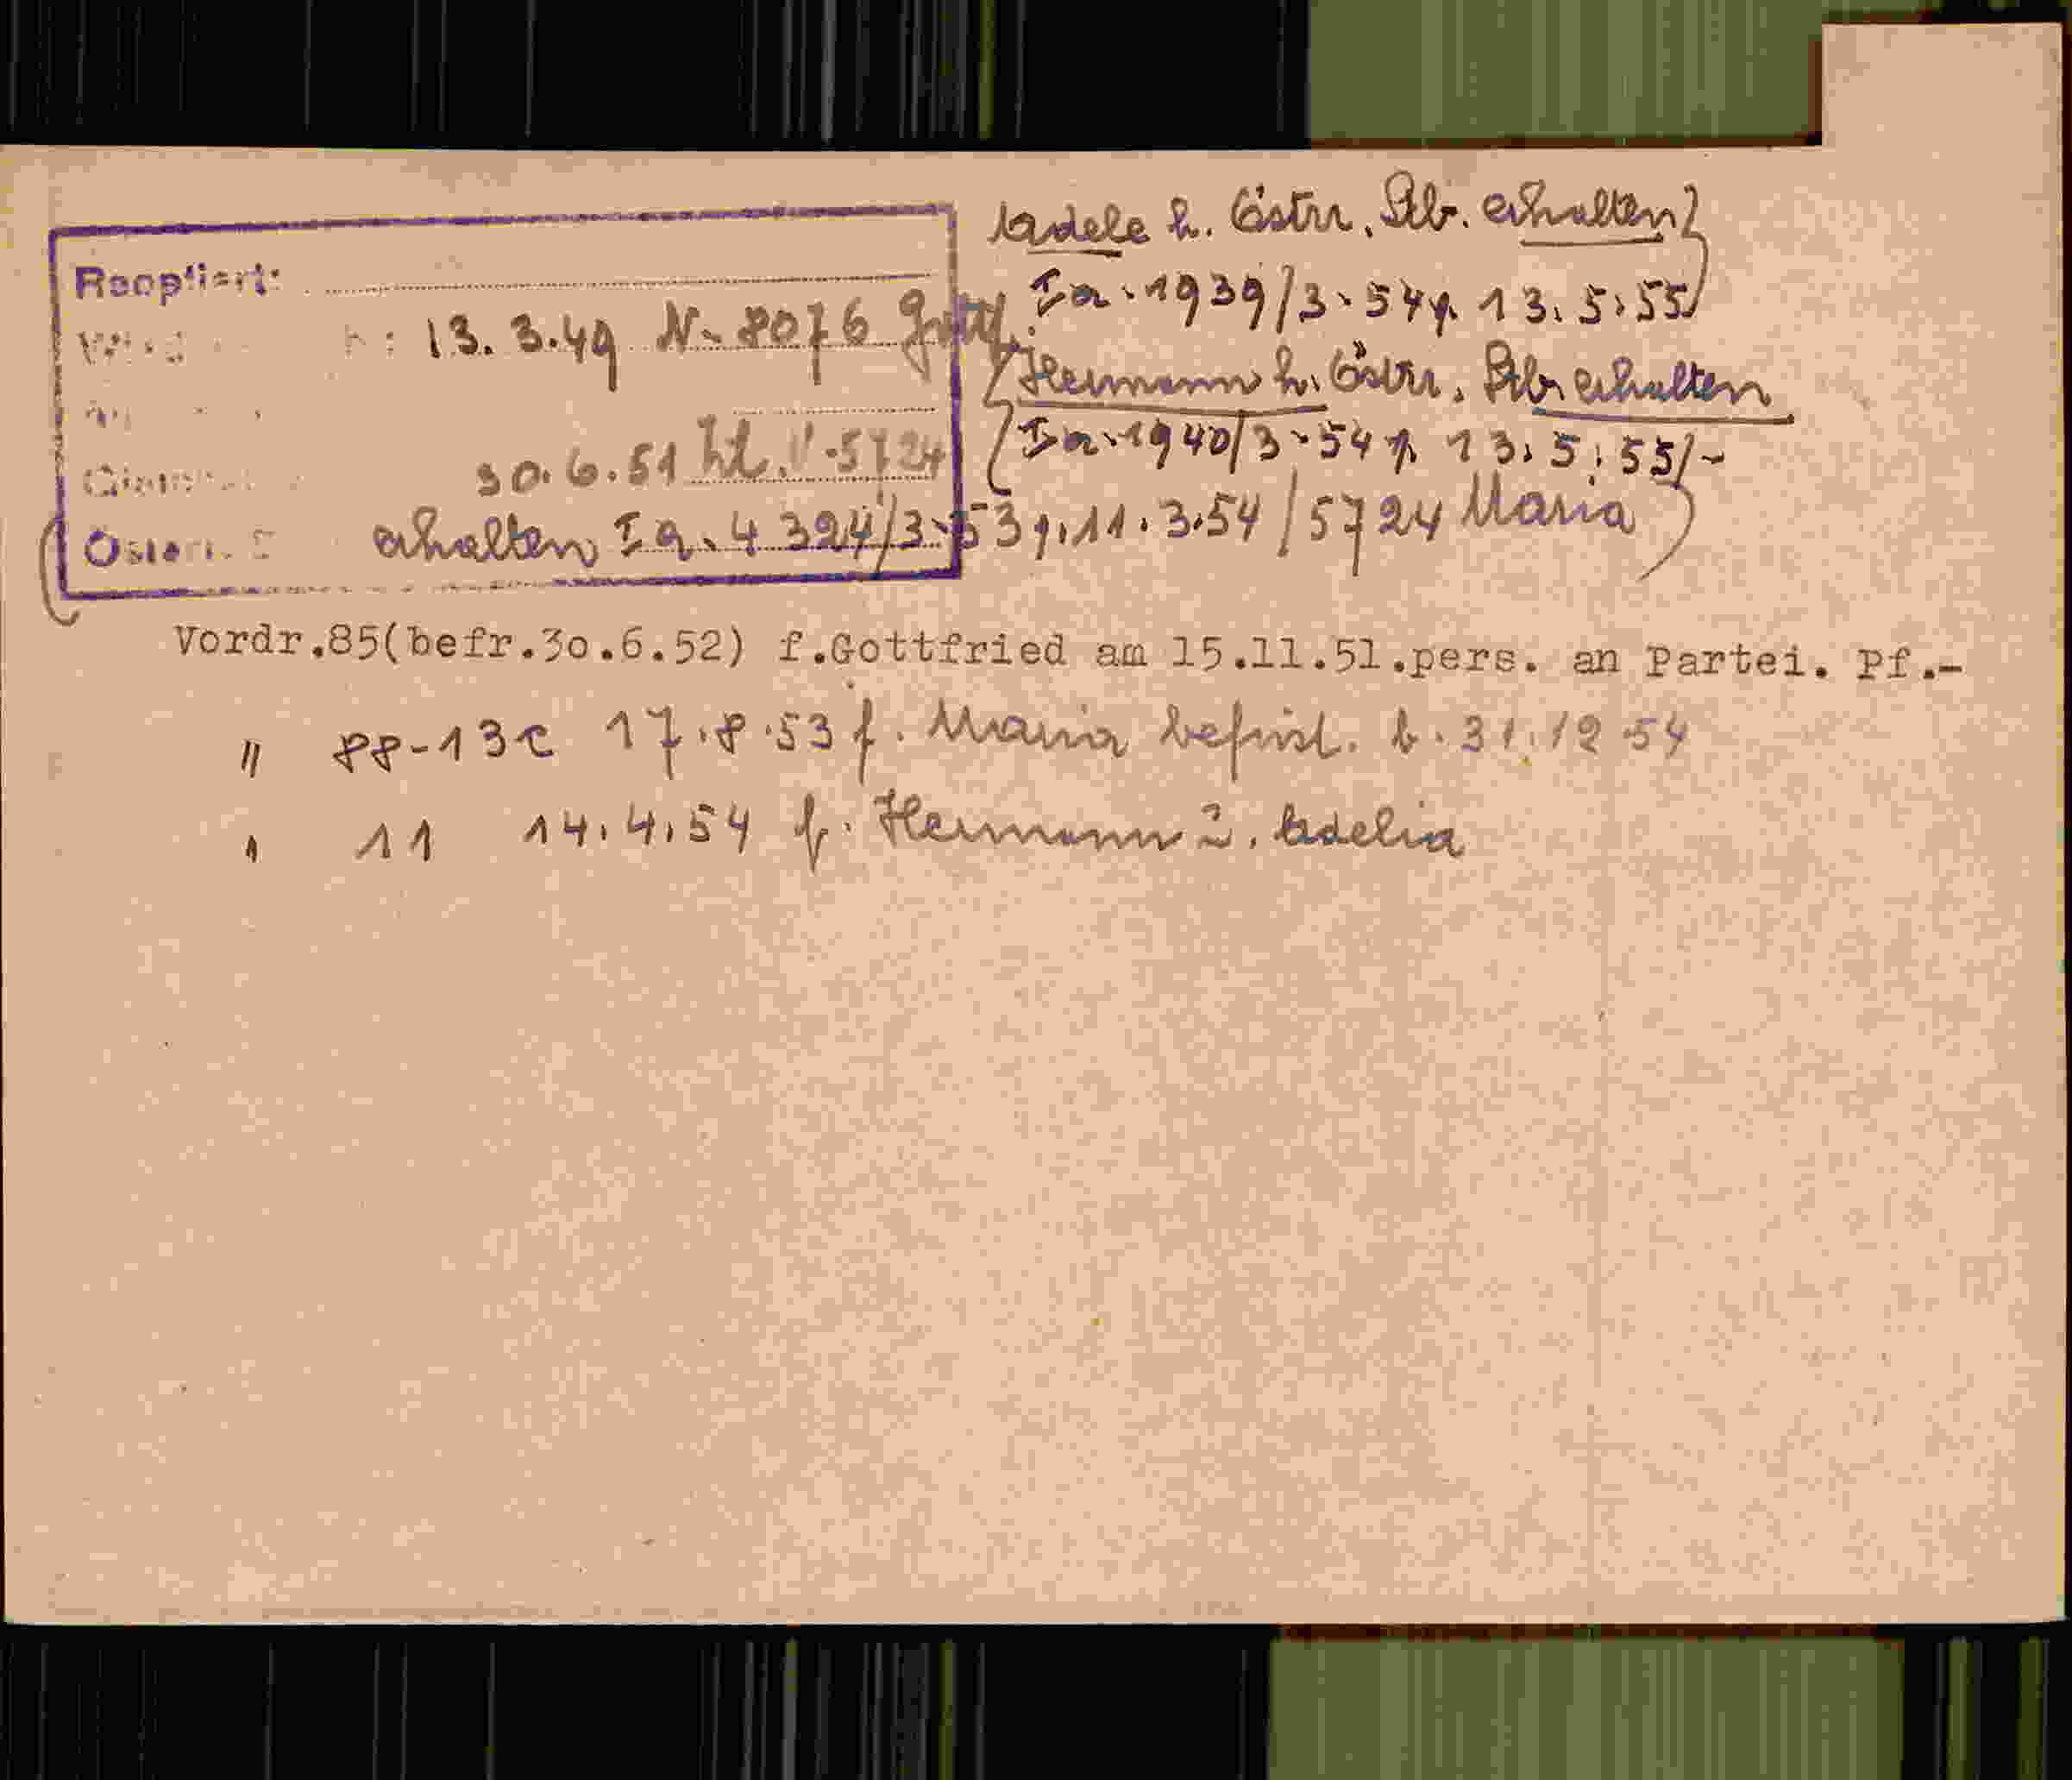 Reoptiert:
13. 3. 49 N. 8076 Gottf.
30. 6. 51 5724
erhalten Ia. 4324/3-53 v. 11. 3. 54 / 5724 Maria
Adele h. Östrr. Stb. erhalten
Ia. 1939/3-54 v. 13. 5. 55
Hermann h. Östrr. Stb. erhalten
Ia. 1940/3-54 v. 13. 5. 55/-
Vordr.85(befr.30.6.52) f.Gottfried am 15.11.51.pers. an Partei. Pf.-
" 88-13c 17. 8. 53 f. Maria befrist. b. 31. 12 54
" 11 14. 4. 54 f. Hermann u. Adelia